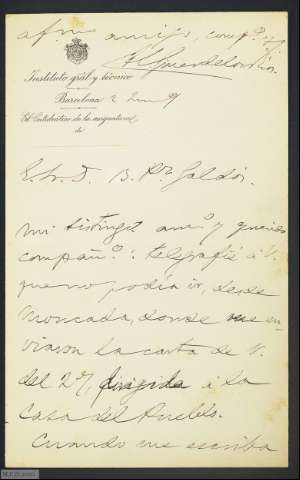 af.mo amigo, comp.o y
Instituto gral y técnico
Barcelona 2
El Catedrático de la asignatura
de
E. S. D. B. Pz Galdós.
Mi disting.o am.o y querido
compañ.o: telegrafié á V.
que no podía ir, desde
Moncada, donde me en-
viaron la carta de V.
del 27, dirigida á la
Casa del Pueblo.
Cuando me escriba